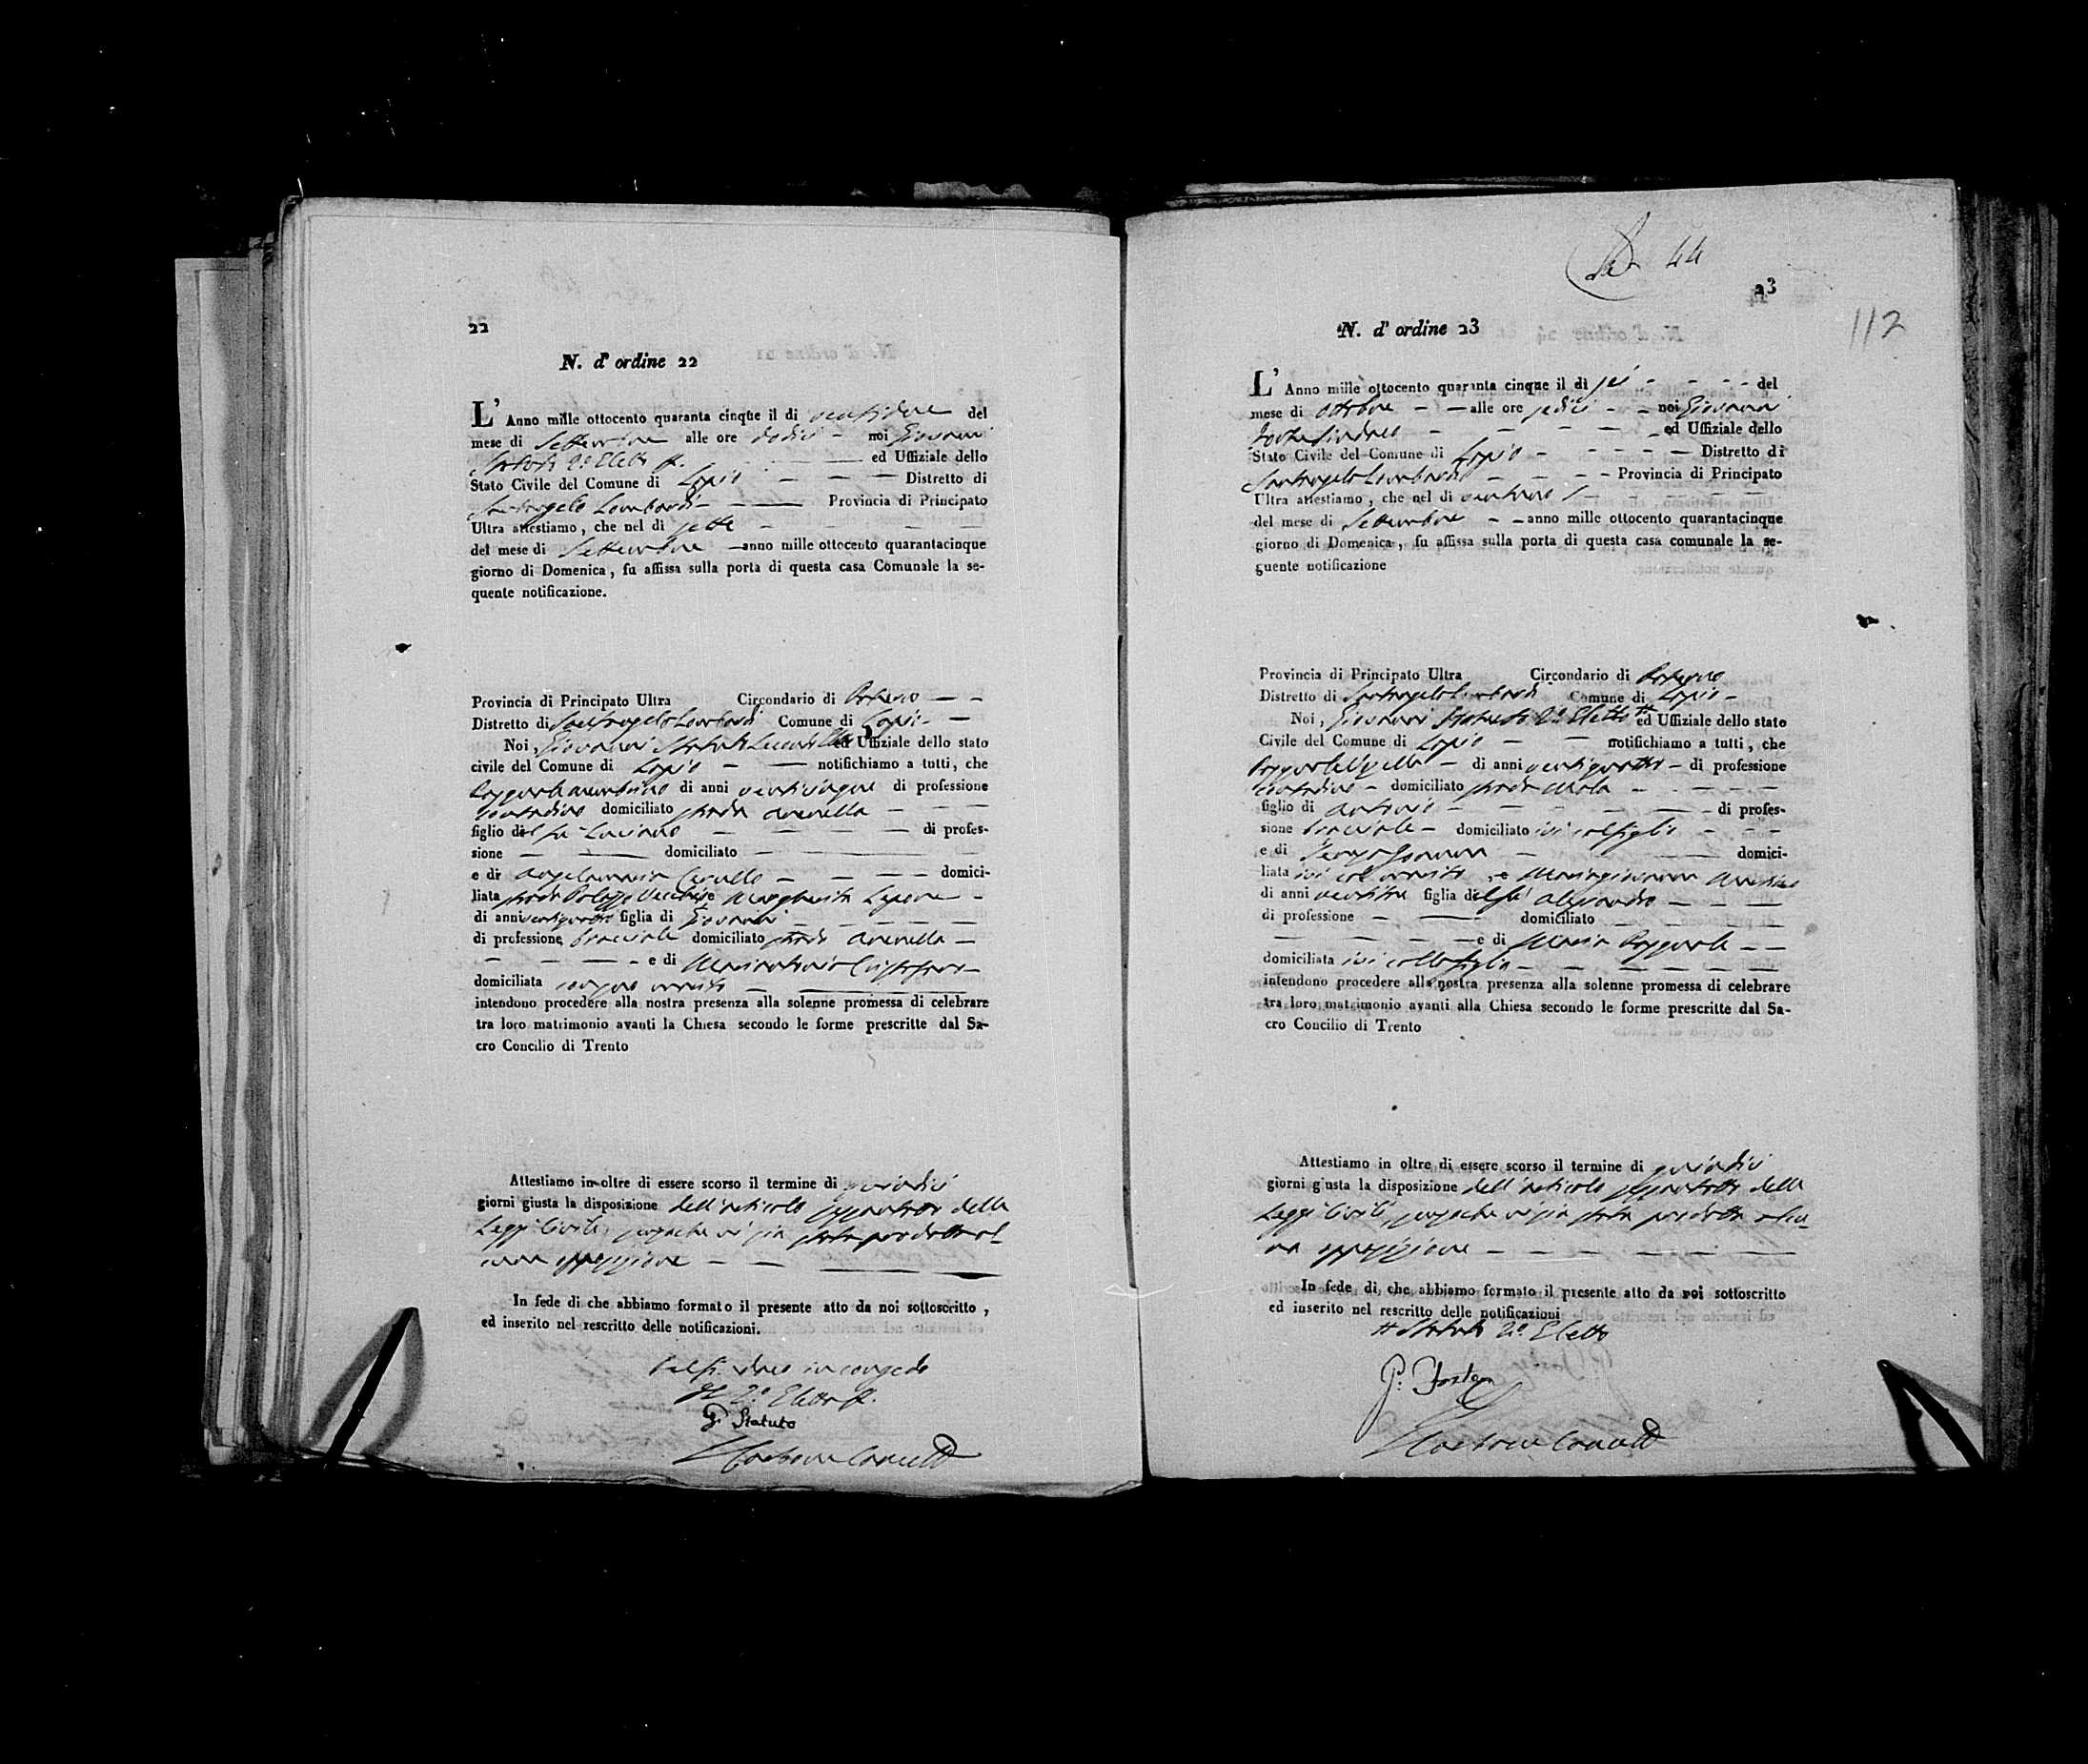 22
N. d' ordine 22
L' Anno mille ottocento quaranta cinque il di ventidue del
mese di Settembre alle ore dodici noi Giovanni
Statuto 2º Eletto ff. ed Uffiziale dello
Stato Civile del Comune di Lapio Distretto di
Santangelo Lombardi Provincia di Principato
Ultra attestiamo, che nel di sette
del mese di Settembre anno mille ottocento quarantacinque
giorno di Domenica, fu affissa sulla porta di questa casa Comunale la se-
quente notificazione.
Provincia di Principato Ultra Circondario di Paterno
Distretto di Santangelo Lombardi Comune di Lapio
Noi, Giovanni Statuto Secondo Eletto ed Uffiziale dello stato
civile del Comune di Lapio notifichiamo a tutti, che
Pasquale di anni venticinque di professione
contadino domiciliato strada
figlio del fu Luciano di profes-
sione domiciliato
e di Angelamaria domici-
liata strada Palazzo Vecchio e Margherita Lepore
di anni ventiquattro figlia di Giovanni
di professione bracciale domiciliato strada
e di Mariantonia
domiciliata marito
intendono procedere alla nostra presenza alla solenne promessa di celebrare
tra loro matrimonio avanti la Chiesa secondo le forme prescritte dal Sa-
cro Concilio di Trento
Attestiamo in oltre di essere scorso il termine di quindici
giorni giusta la disposizione dell'articolo sessantotto delle
Leggi Civili, senza che vi sia stata prodotta al-
cuna opposizione
In fede di che abbiamo formato il presente atto da noi sottoscritto,
ed inserito nel rescritto delle notificazioni.
Pel Sindaco in congedo
Il 2º Eletto ff.
G. Statuto
44
23
112
N. d' ordine 23
L' Anno mille ottocento quaranta cinque il di sei del
mese di Ottobre alle ore sedici noi Giovanni
Forte Sindaco ed Uffiziale dello
Stato Civile del Comune di Lapio Distretto di
Santangelo Lombardi Provincia di Principato
Ultra attestiamo, che nel di ventuno
del mese di Settembre anno mille ottocento quarantacinque
giorno di Domenica, fu affissa sulla porta di questa casa comunale la se-
guente notificazione
Provincia di Principato Ultra Circondario di Paterno
Distretto di Santangelo Lombardi Comune di Lapio
Noi, Giovanni Statuto 2º Eletto ff ed Uffiziale dello stato
Civile del Comune di Lapio notifichiamo a tutti, che
Pasquale di anni ventiquattro di professione
contadino domiciliato strada
figlio di Antonio di profes-
sione bracciale domiciliato ivi col figlio
e di domici-
liata ivi col marito, e Mariagiovanna
di anni ventitre figlia del fu Alesandro
di professione domiciliato
e di Maria Pasquale
domiciliata ivi colla figlia
intendono procedere alla nostra presenza alla solenne promessa di celebrare
tra loro matrimonio avanti alla Chiesa secondo le forme prescritte dal Sa-
cro Concilio di Trento
Attestiamo in oltre di essere scorso il termine di quindici
giorni giusta la disposizione dell'articolo sessantotto delle
Leggi Civili, senza che vi sia stata prodotta alcu-
na opposizione
In fede di che abbiamo formato il presente atto da noi sottoscritto
ed inserito nel rescritto delle notificazioni
ff Statuto 2º Eletto